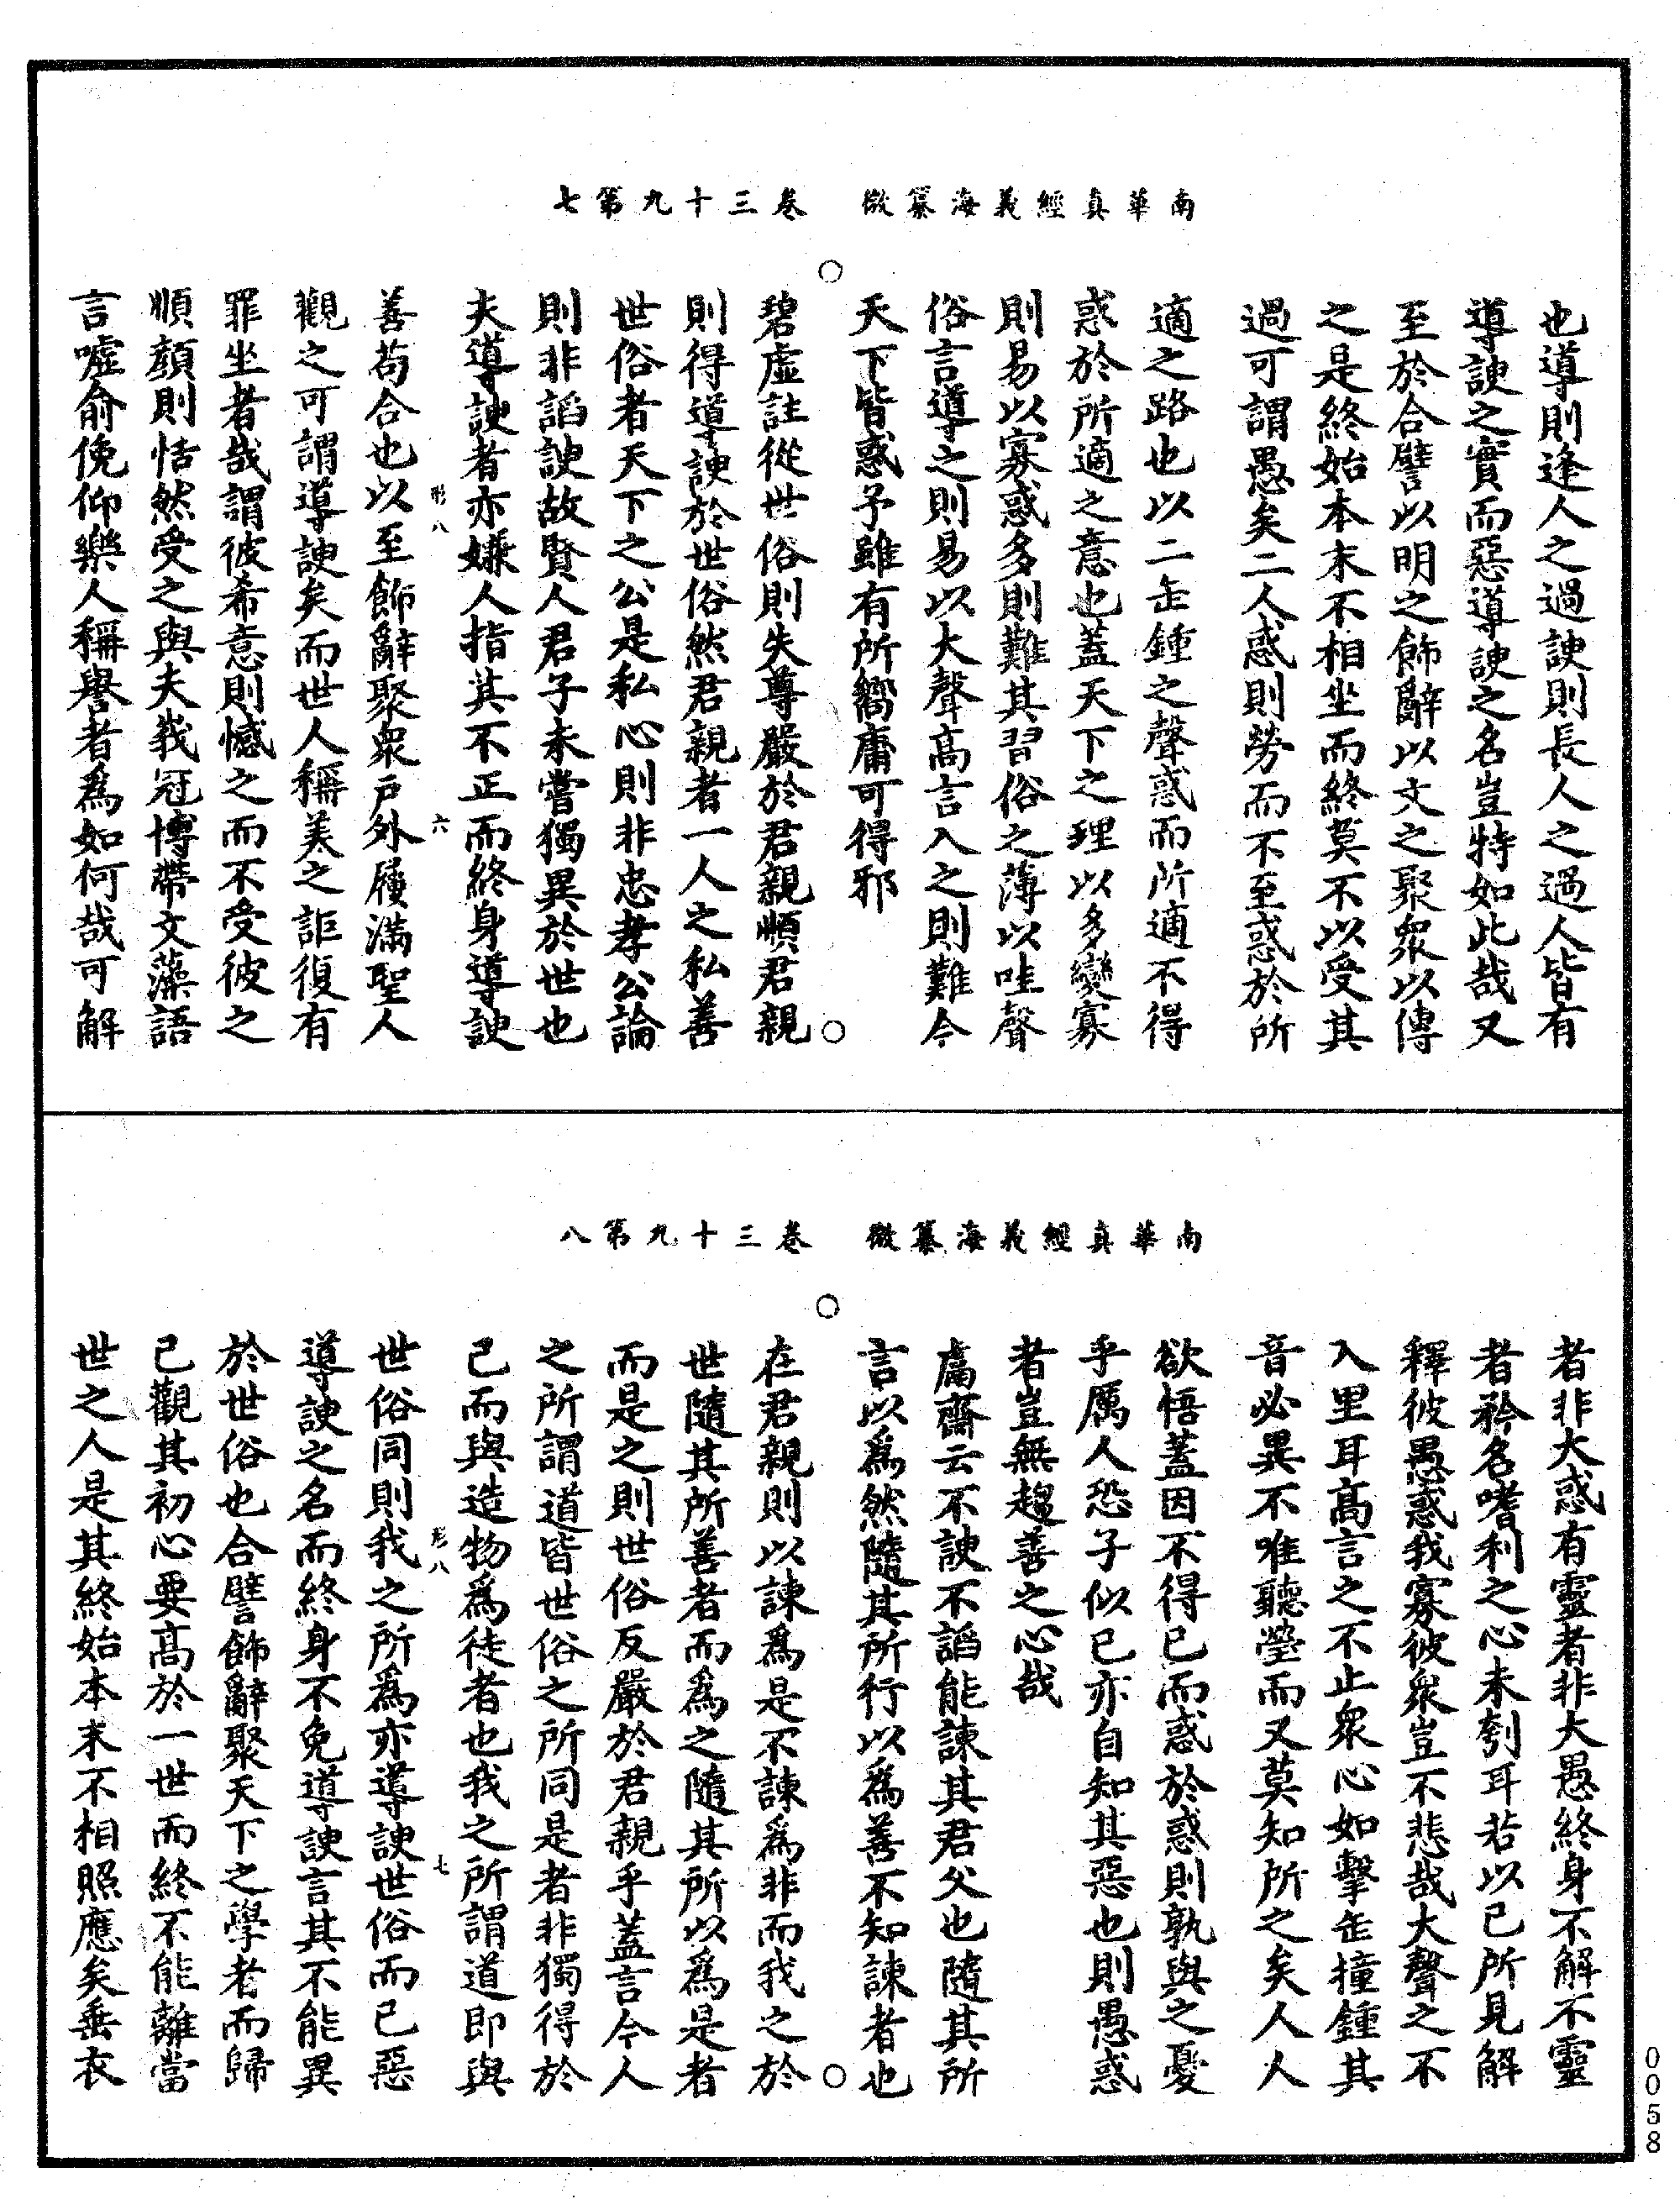 南華真經義海纂微　卷三十九第七
也導則逢人之過諛則長人之過人皆有
導諛之實而惡導諛之名豈特如此哉又
至於合譬以明之飾辭以文之聚眾以傳
之是終始本末不相坐而終莫不以受其
過可謂愚矣二人惑則勞而不至惑於所
適之路也以二缶鍾之聲惑而所適不得
惑於所適之意也蓋天下之理以多變寡
則易以寡惑多則難其習俗之薄以哇聲
俗言導之則易以大聲高言入之則難今
天下皆惑予雖有所嚮庸可得邪
碧虛註從世俗則失尊嚴於君親順君親
則得導諛於世俗然君親者一人之私善
世俗者天下之公是私心則非忠孝公論
則非謟諛故賢人君子未嘗獨異於世也
夫導諛者亦嫌人指其不正而終身導諛
形八　六
善苟合也以至飾辭聚眾戶外屨滿聖人
觀之可謂導諛矣而世人稱美之詎復有
罪坐者哉謂彼希意則憾之而不受彼之
順顏則恬然受之與夫峩冠博帶文藻語
言噓俞俛仰樂人稱譽者為如何哉可解
南華真經義海纂微　卷三十九第八
者非大惑有靈者非大愚終身不解不靈
者矜名嗜利之心未刳耳若以已所見解
釋彼愚惑我寡彼眾豈不悲哉大聲之不
入里耳高言之不止眾心如擊缶撞鍾其
音必異不唯聽瑩而又莫知所之矣人人
欲悟蓋因不得已而惑於惑則孰與之憂
乎厲人恐子似已亦自知其惡也則愚惑
者豈無趨善之心哉
鬳齋云不諛不謟能諫其君父也隨其所
言以為然隨其所行以為善不知諫者也
在君親則以諫為是不諫為非而我之於
世隨其所善者而為之隨其所以為是者
而是之則世俗反嚴於君親乎蓋言今人
之所謂道皆世俗之所同是者非獨得於
己而與造物為徒者也我之所謂道即與
形八　七
世俗同則我之所為亦導諛世俗而已惡
導諛之名而終身不免導諛言其不能異
於世俗也合譬飾辭聚天下之學者而歸
已觀其初心要高於一世而終不能離當
世之人是其終始本末不相照應矣垂衣
0058